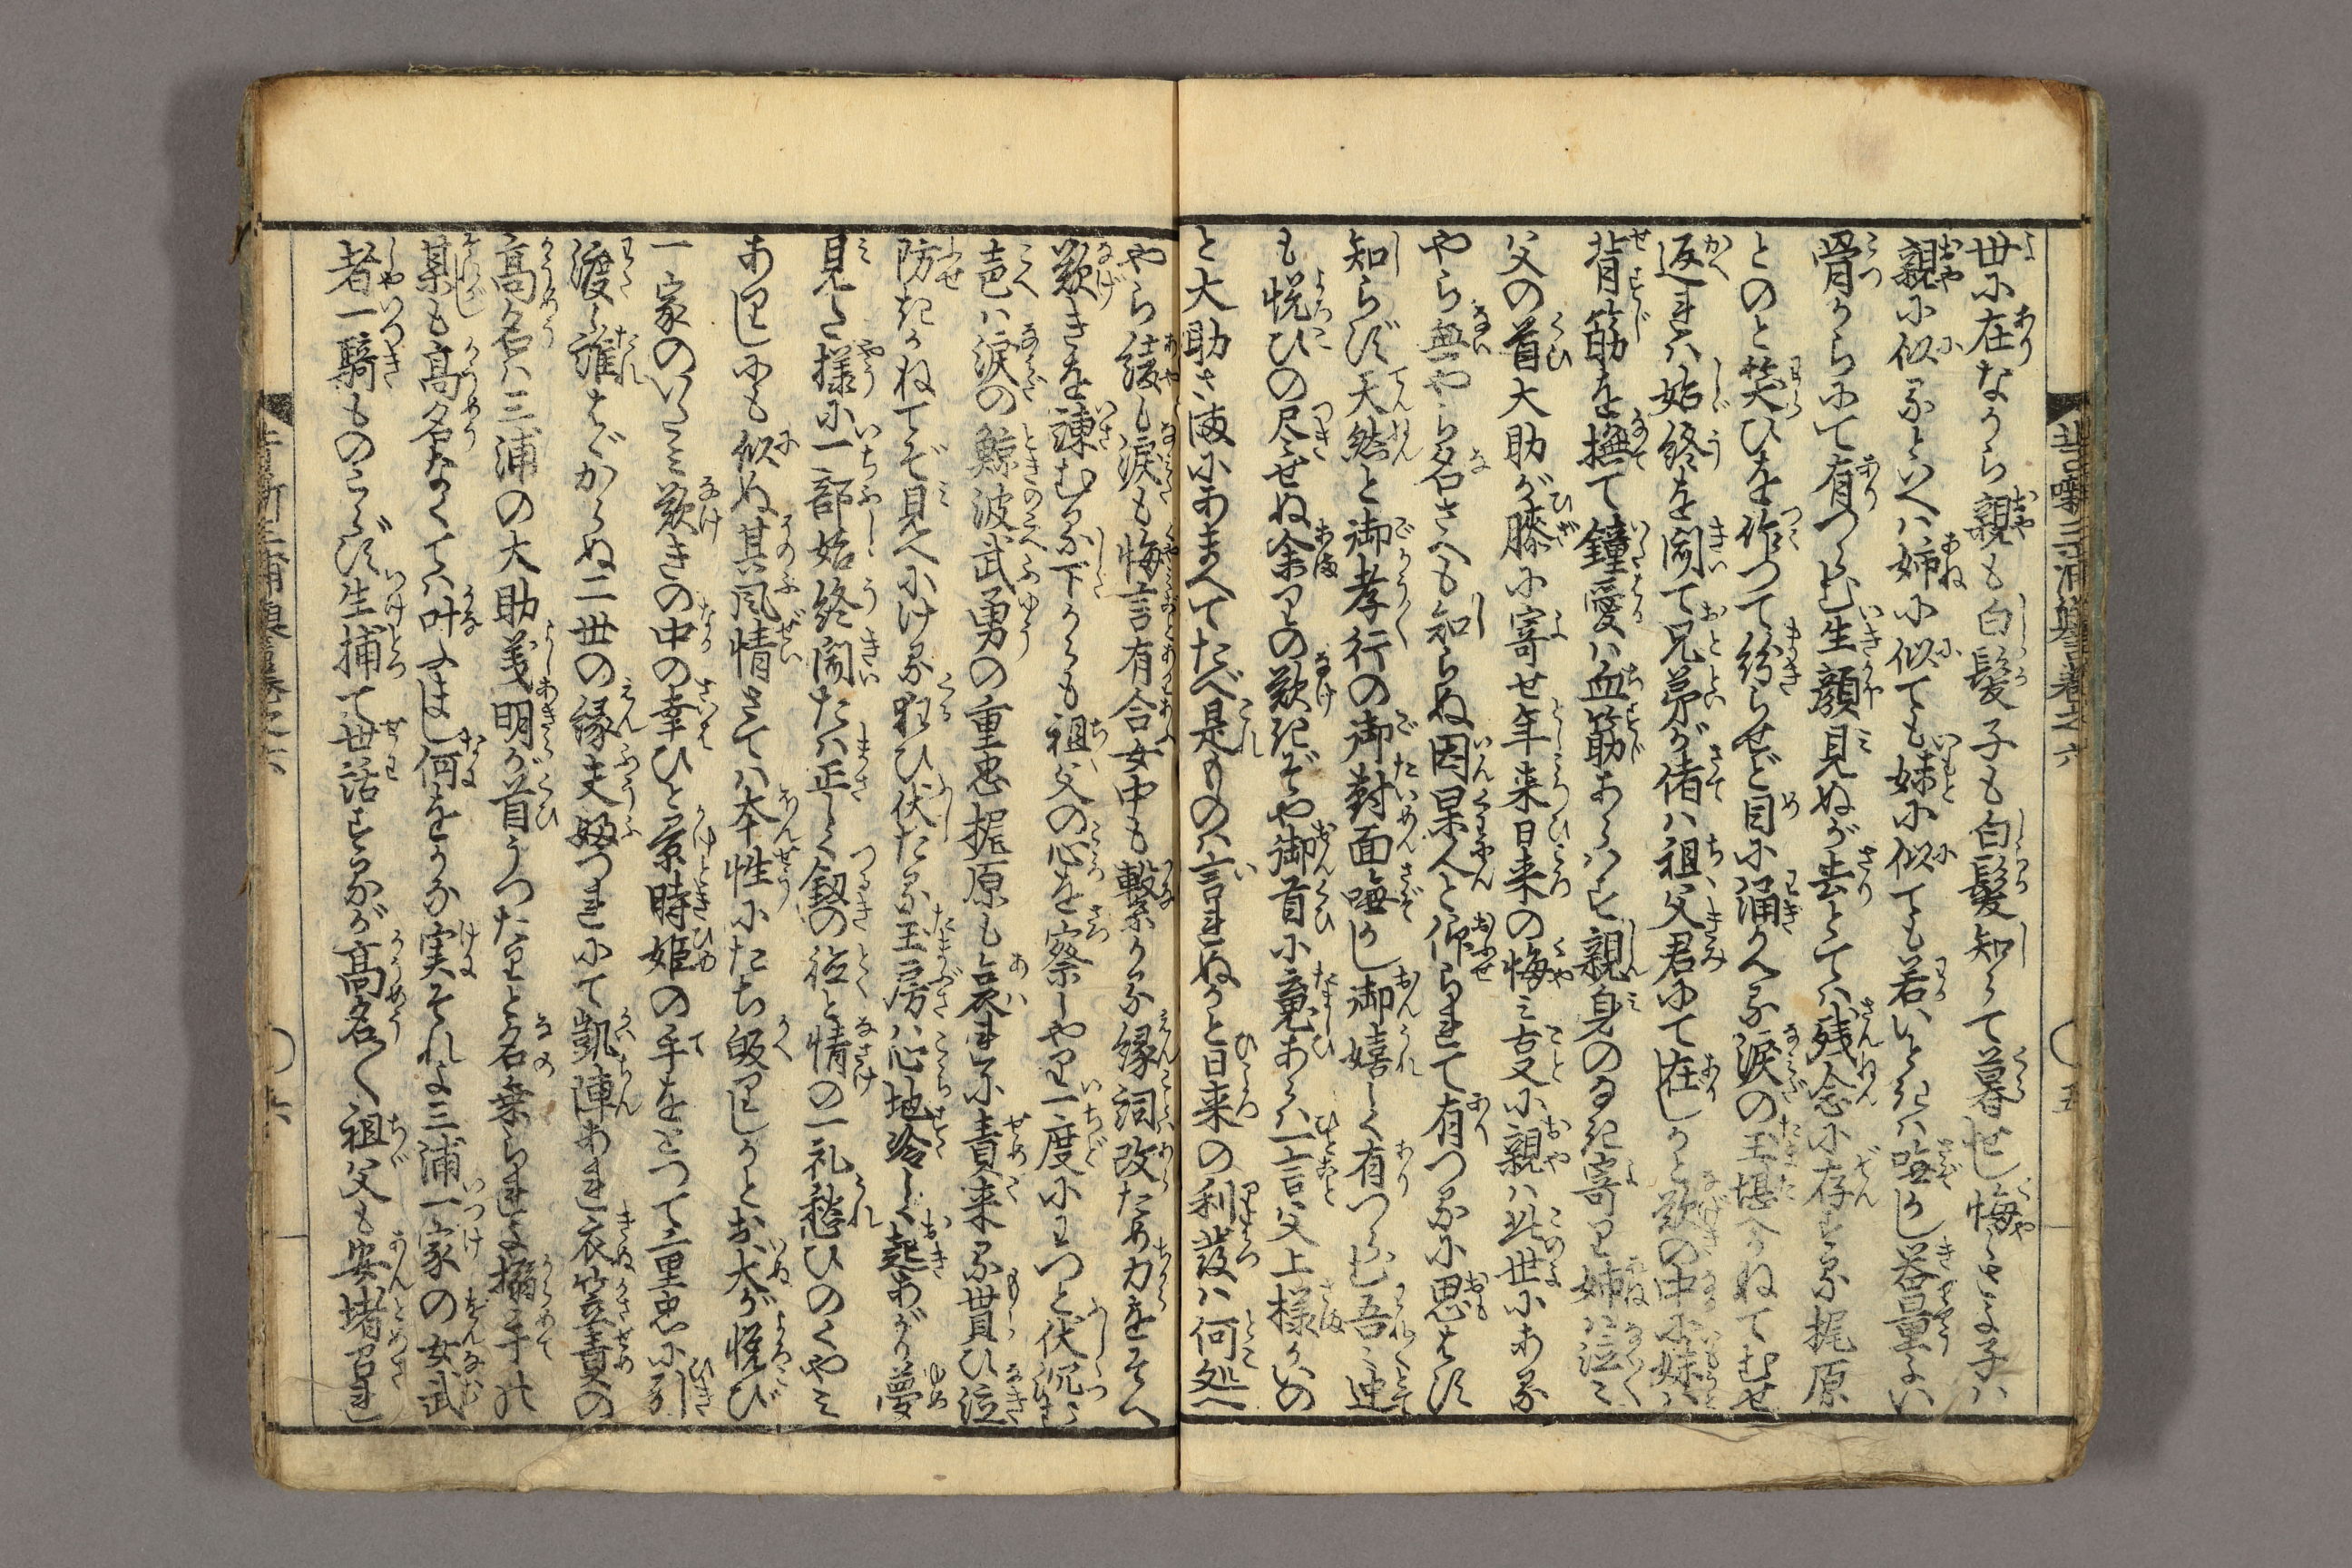 世に在ながら親も白髪子も白髪知らで暮せし悔しさよ子は
親に似るといへは姉に似ても妹に似ても若いときは嘸かし器量よい
骨からにて有つらむ生顔見ぬが去とては残念に存ずる梶原
とのと笑ひを作つて紛らせど目に涌かへる涙の玉堪へかねてむせ
返れは始終を聞て兄弟が偖は祖父君にて在しかと歎の中に妹は
背筋を撫て鐘愛は血筋あらはす親身のなき寄り姉は泣〻
父の首大助が膝に寄せ年来日来の悔み言に親は此世にある
やら無やら名さへも知らぬ因果人と仰られて有つるに思はず
知らず天然と御孝行の御対面嘸かし御嬉しく有つらむ吾〻迚
も悦ひの尽せぬ余りの歎きぞや御首に魂あらは一言父上様かいの
と大助さまにあまへてたべ是ものは言れぬかと日来の利発は何処へ
やら綾も涙も悔言有合女中も繋かる縁詞改ため力をそへ
歎きを諌むる下からも祖父の心を察しやり一度にわつと伏沉む
声は涙の鯨波武勇の重忠梶原も哀れに責来る貰ひ泣
防きかねてぞ見へにける狂ひ伏たる玉房は心地冷しく起あがり夢
見し様に一部始終聞たは正しく釼の徳と情の一礼愁ひのくやみ
ありしにも似ぬ其風情さては本性にたち皈りしかとお犬が悦び
一家のいさみ歎きの中の幸ひと景時姫の手をとつて重忠に引
渡し誰はゞからぬ二世の縁夫婦つれにて凱陣あれ衣笠責の
高名は三浦の大助義明が首うつたりと名乗られよ搦手の
某も高名なくては叶ふまし何をかな実それよ三浦一家の女武
者一騎ものこらず生捕て世話するが高名〳〵祖父も安堵召れ